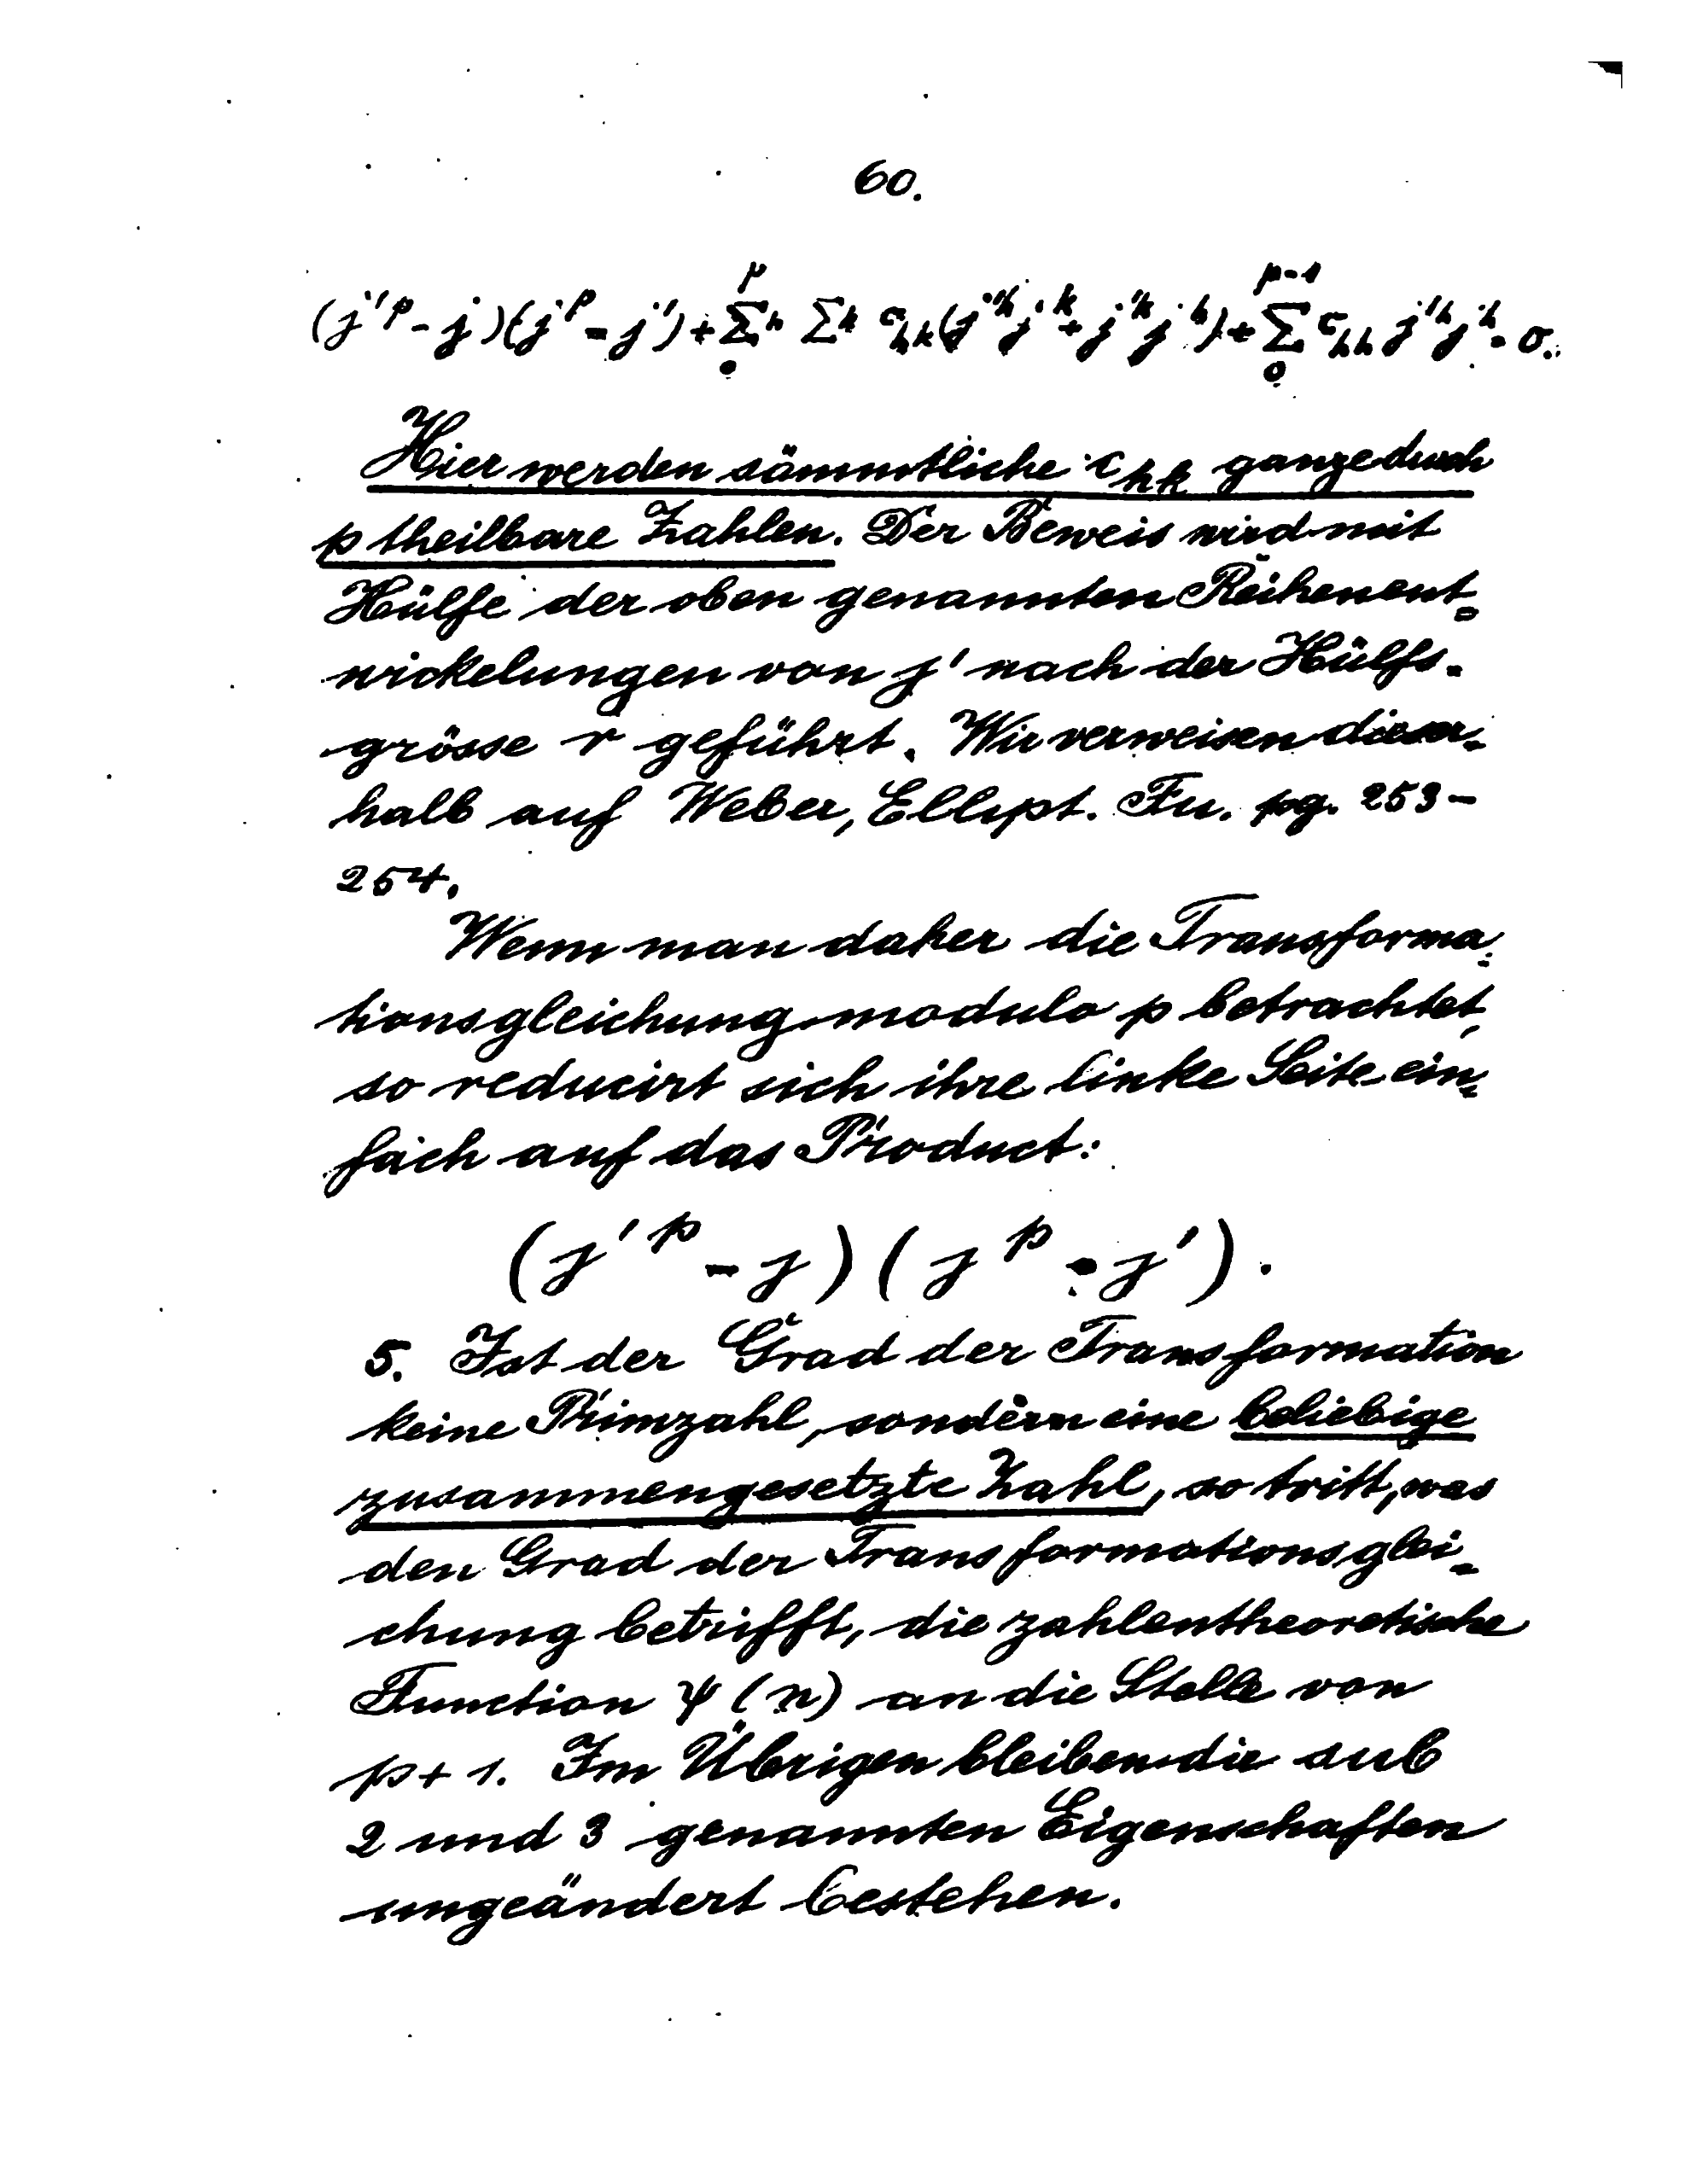 60.
(j'^p - j)(j^p - j') + \sum_0^p{}^h \sum{}^k c_{hk}(j'^h j^k + j'^k j^h) + \sum_0^{p-1} c_{hh} j'^h j^h = 0.
Hier werden sämmtliche c_{hk} ganze durch
p theilbare Zahlen. Der Beweis wird mit
Hülfe der oben genannten Reihenent-
wickelungen von j' nach der Hülfs-
grösse r geführt. Wir verweisen dieser-
halb auf Weber, Ellipt. Fu. pg. 253-
254.
Wenn man daher die Transforma-
tionsgleichung modulo p betrachtet,
so reducirt sich ihre linke Seite ein-
fach auf das Product:
(j'^p - j)(j^p - j').
5. Ist der Grad der Transformation
keine Primzahl, sondern eine beliebige
zusammengesetzte Zahl, so tritt, was
den Grad der Transformationsglei-
chung betrifft, die zahlentheoretische
Function ψ(n) an die Stelle von
p+1. Im Übrigen bleiben die sub
2 und 3 genannten Eigenschaften
ungeändert bestehen.